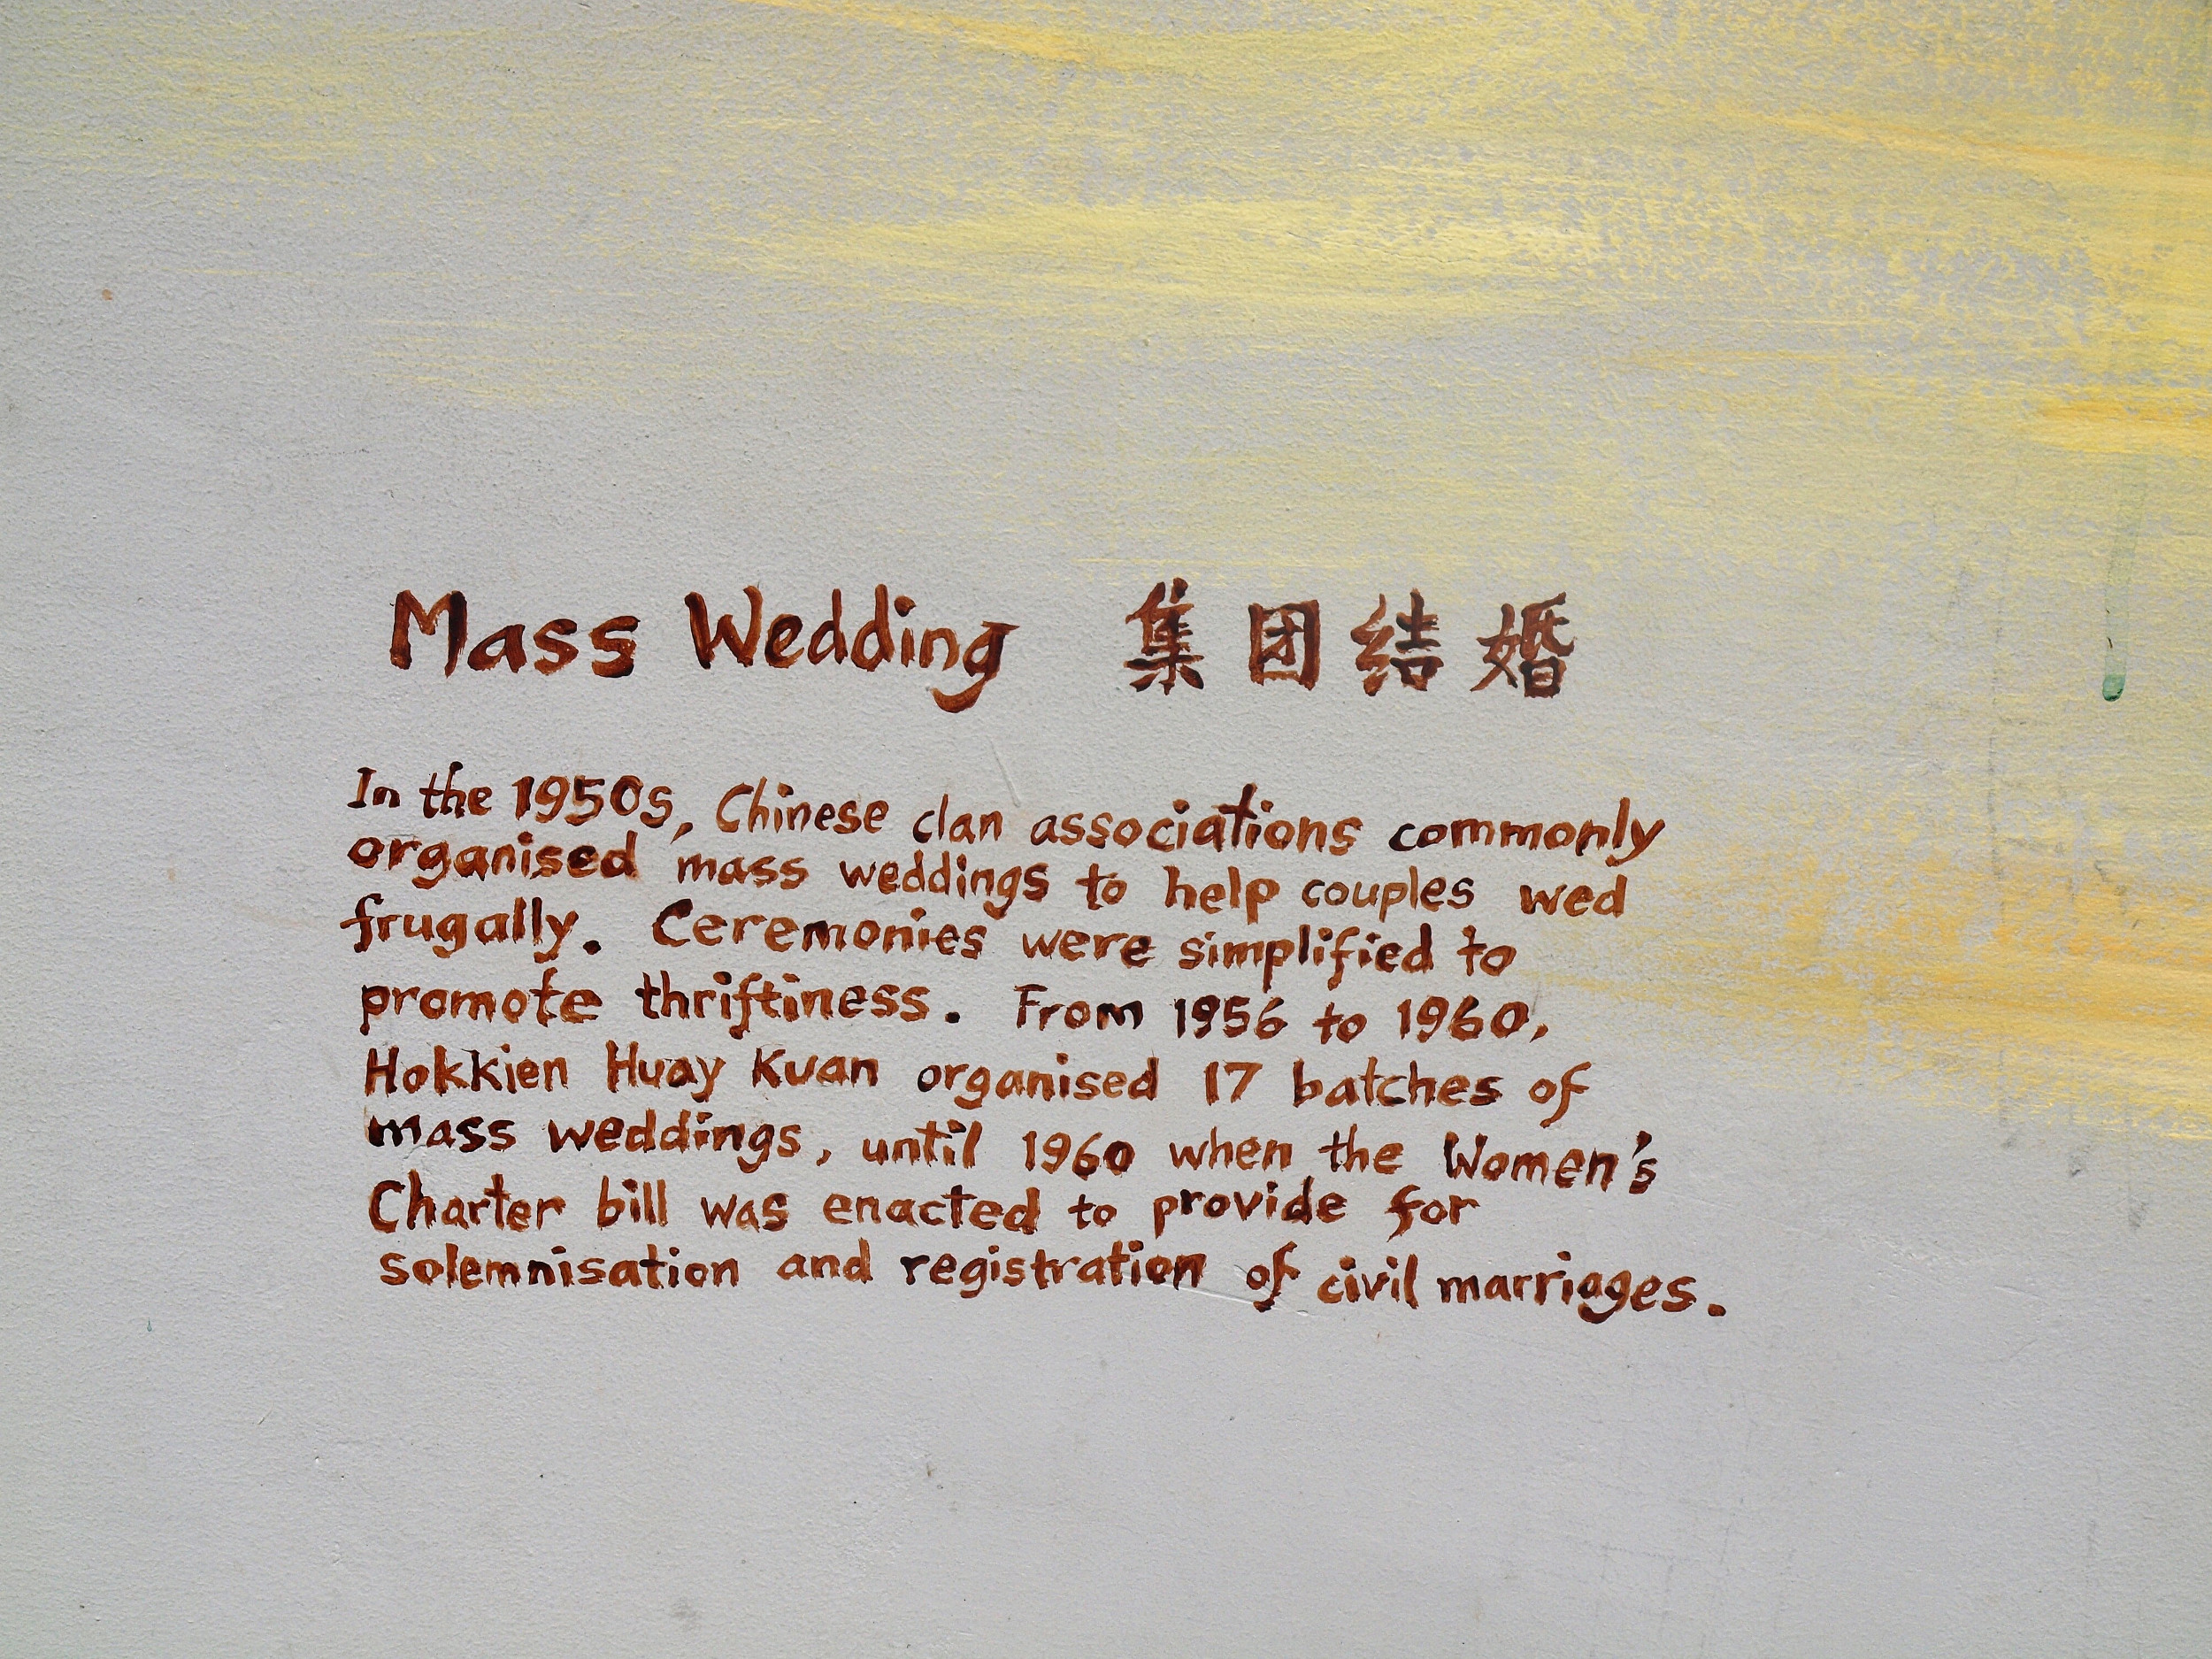 Mass Wedding 集团结婚
In the 1950s, Chinese clan associations commonly
organised mass weddings to help couples wed
frugally. Ceremonies were simplified to
promote thriftiness. From 1956 to 1960,
Hokkien Huay Kuan organised 17 batches of
mass weddings, until 1960 when the Women's
Charter bill was enacted to provide for
solemnisation and registration of civil marriages.